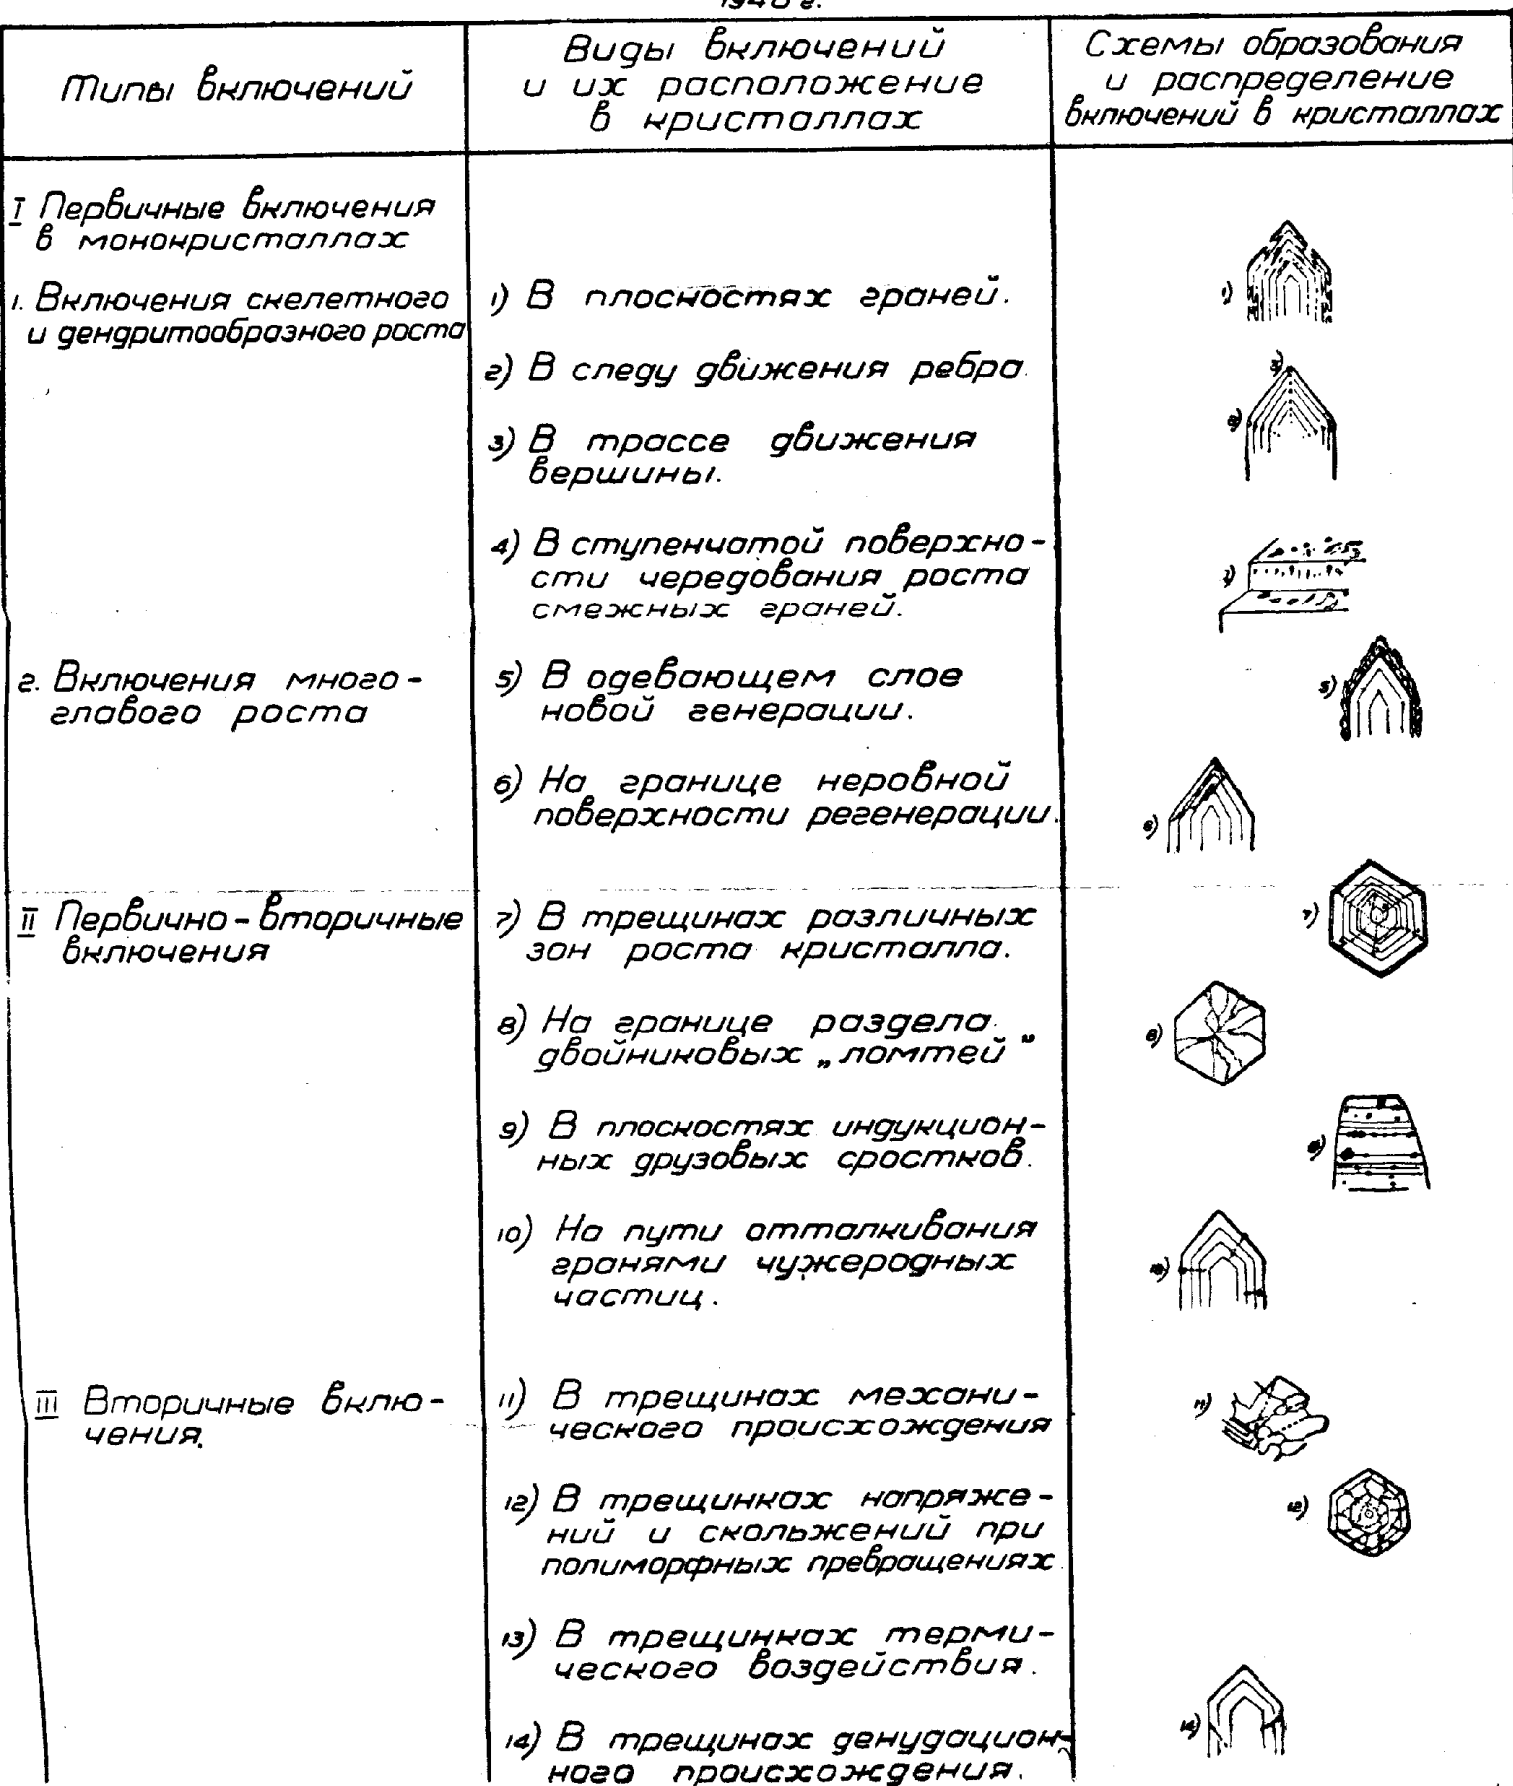 1948 г.
Типы включений
Виды включений
и их расположение
в кристаллах
Схемы образования
и распределение
включений в кристаллах
I Первичные включения
в монокристаллах
1. Включения скелетного
и дендритообразного роста
1) В плоскостях граней.
2) В следу движения ребра.
3) В трассе движения
вершины.
4) В ступенчатой поверхно-
сти чередования роста
смежных граней.
1)
3)
2)
2. Включения много-
главого роста
5) В одевающем слое
новой генерации.
6) На границе неровной
поверхности регенерации.
5)
6)
II Первично-вторичные
включения
7) В трещинах различных
зон роста кристалла.
8) На границе раздела
двойниковых „ломтей"
9) В плоскостях индукцион-
ных друзовых сростков.
10) На пути отталкивания
гранями чужеродных
частиц.
7)
8)
10)
III Вторичные вклю-
чения.
11) В трещинах механи-
ческого происхождения
12) В трещинках напряже-
ний и скольжений при
полиморфных превращениях.
13) В трещинках терми-
ческого воздействия.
14) В трещинах денудацион-
ного происхождения.
11)
12)
14)